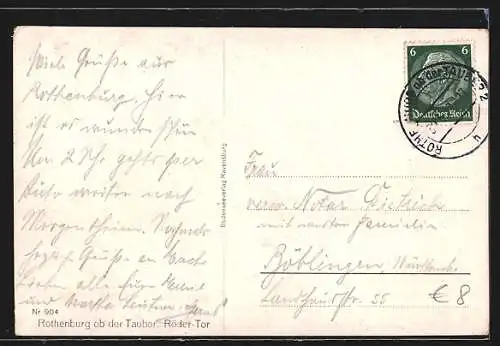 Viele Grüße aus
Rothenburg. Hier
ist es wunderschön
Um 2 Uhr gehts per
Auto weiter nach
Morgentheim. Nochmals
herzl. Grüße an Euch
alle für
und
Nr 904
Rothenburg ob der Tauber. Röder-Tor
Bodenseeverlag Ravensburg
6 6
Deutsches Reich
ROTHENBURG OB DER TAUBER 2
Frau
verw. Notar Dietrich
mit Familie
Böblingen, Württbg
Landhausstr. 55
€ 8